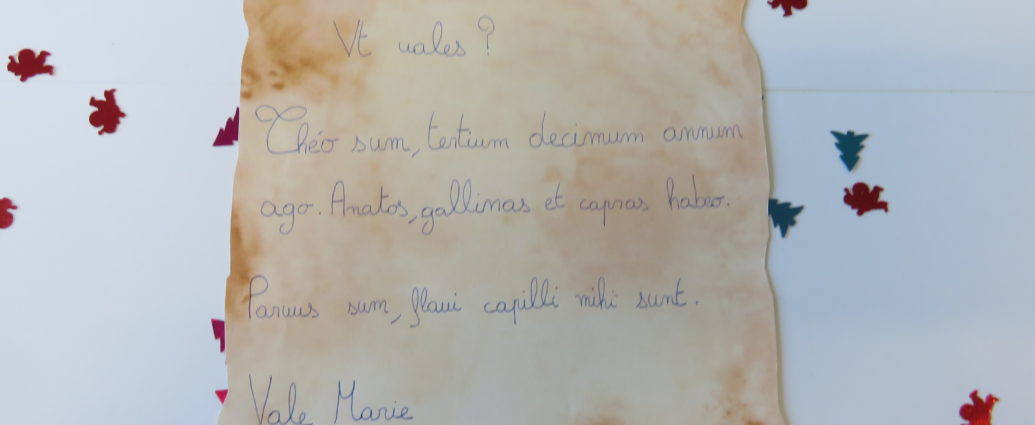 Vt uales ?
Théo sum, tertium decimum annum
ago. Anatos, gallinas et capras habeo.
Paruus sum, flaui capilli mihi sunt.
Vale Marie